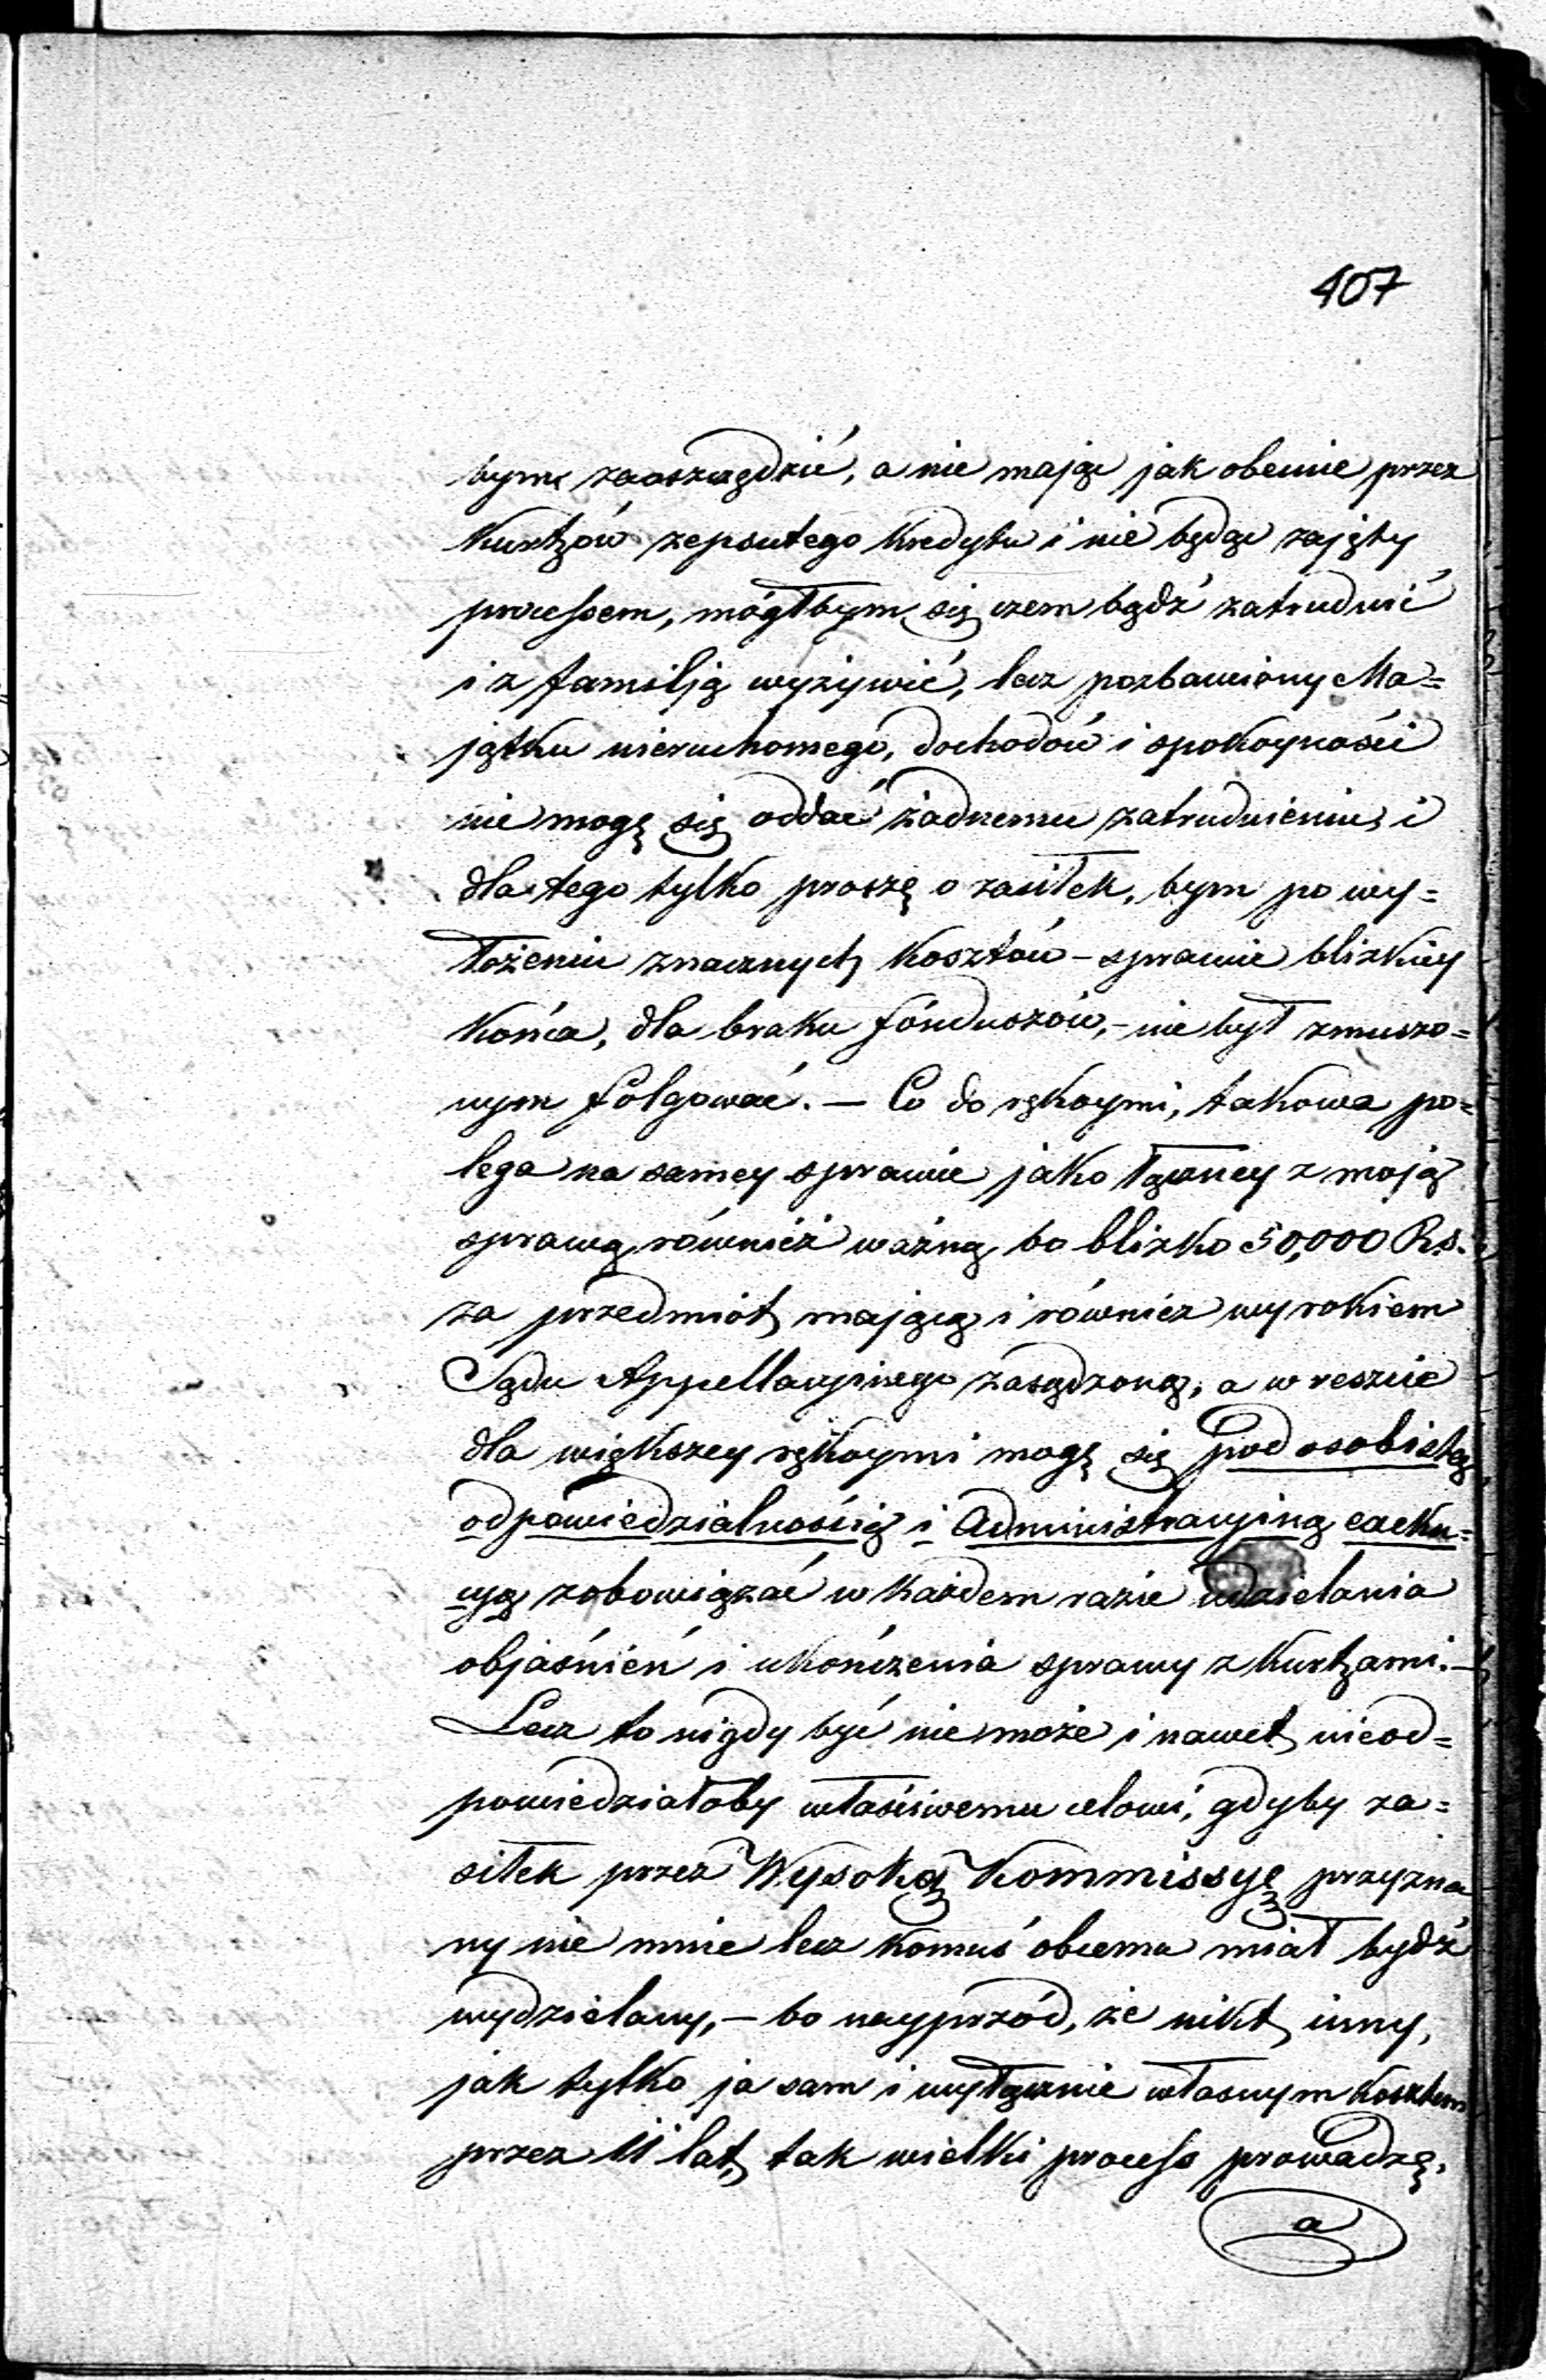 407
bym zaoszczędzić, a nie mając jak obecnie przez
Kurtzów zepsutego kredytu i nie będąc zajęty
processem, mógłbym się czem bądź zatrudnić
i z familją wyżywić, lecz pozbawiony Ma=
jątku nieruchomego, dochodów i spokoyności
nie mogę się oddać żadnemu zatrudnieniu, i
dla tego tylko proszę o zasiłek, bym po wy=
łożeniu znacznych kosztów – sprawie blizkiey
końca, dla braku fónduszów, – nie był zmuszo=
nym fólgować. – Co do rękoymi, takowa po=
lega na samey sprawie jako łączney z moją
sprawą również ważną bo blizko 50,000 Rs.
za przedmiot mającą i również wyrokiem
Sądu Appellacyinego zasądzoną, a w reszcie
dla większey rękoymi mogę się pod osobistą
odpowiedzialnością i Administracyiną exeku=
cyą zobowiązać w każdem razie udzielania
objaśnień i ukończenia sprawy z Kurtzami. –
Lecz to nigdy być nie może i nawet nieod=
powiedziałoby właściwemu celowi, gdyby za=
siłek przez Wysoką Kommissyę przyzna
ny nie mnie lecz komuś obcemu miał bydź
wydzielany, – bo nayprzód, że nikt inny,
jak tylko ja sam i wyłącznie własnym kosztem
przez 11 lat, tak wielki process prowadzę,
a